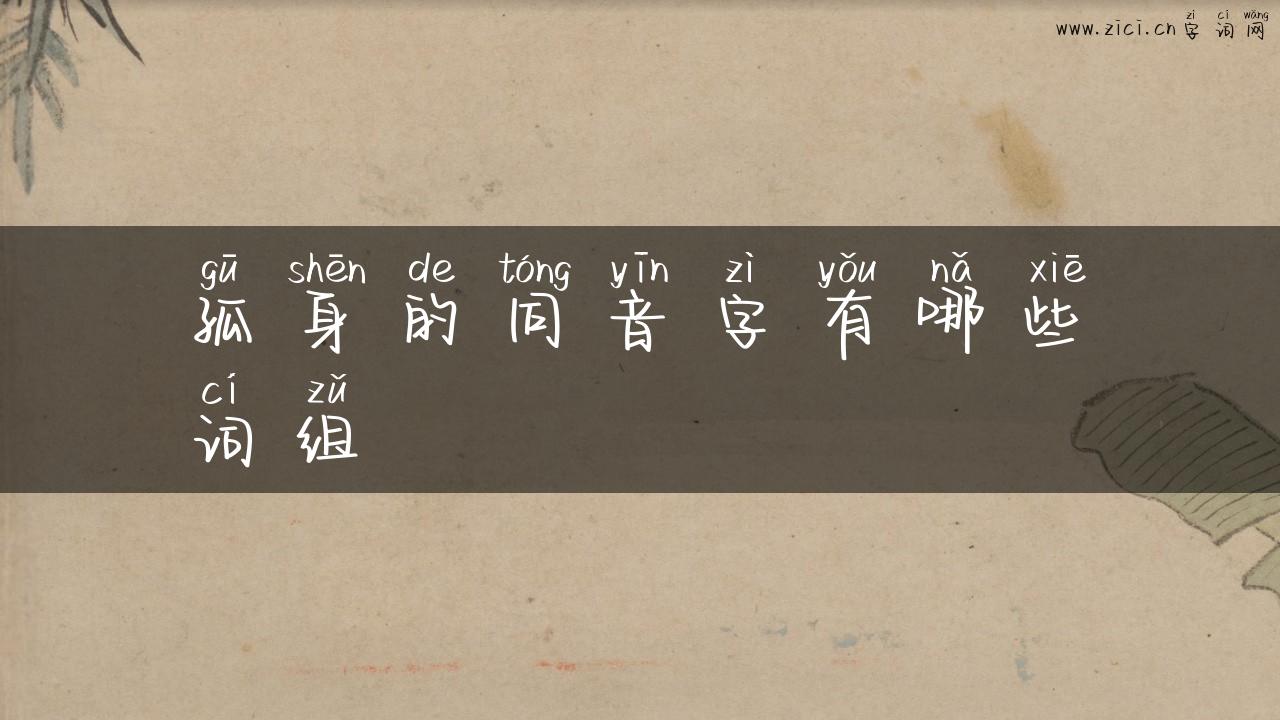 zì cí wǎng
www.zici.cn 字 词 网
gū shēn de tóng yīn zì yǒu nǎ xiē
孤 身 的 同 音 字 有 哪 些
cí zǔ
词 组